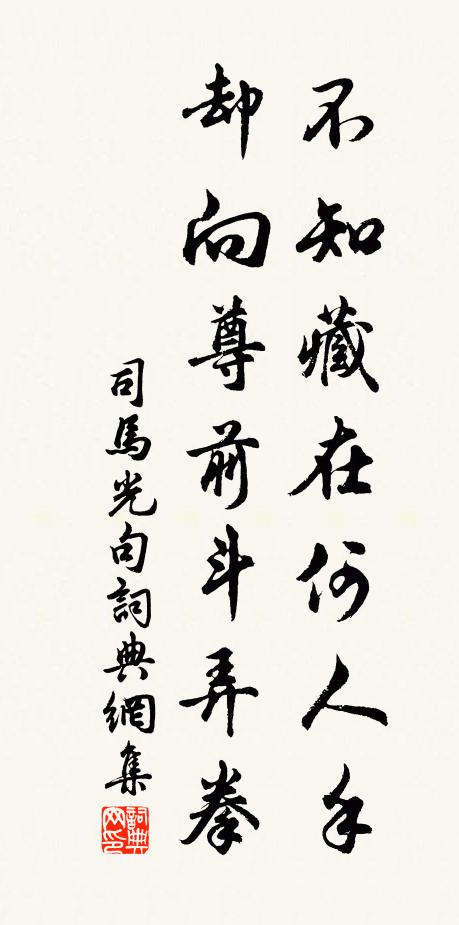 不知藏在何人手
却向尊前斗弄拳
司馬光句詞典網集
詞典網印